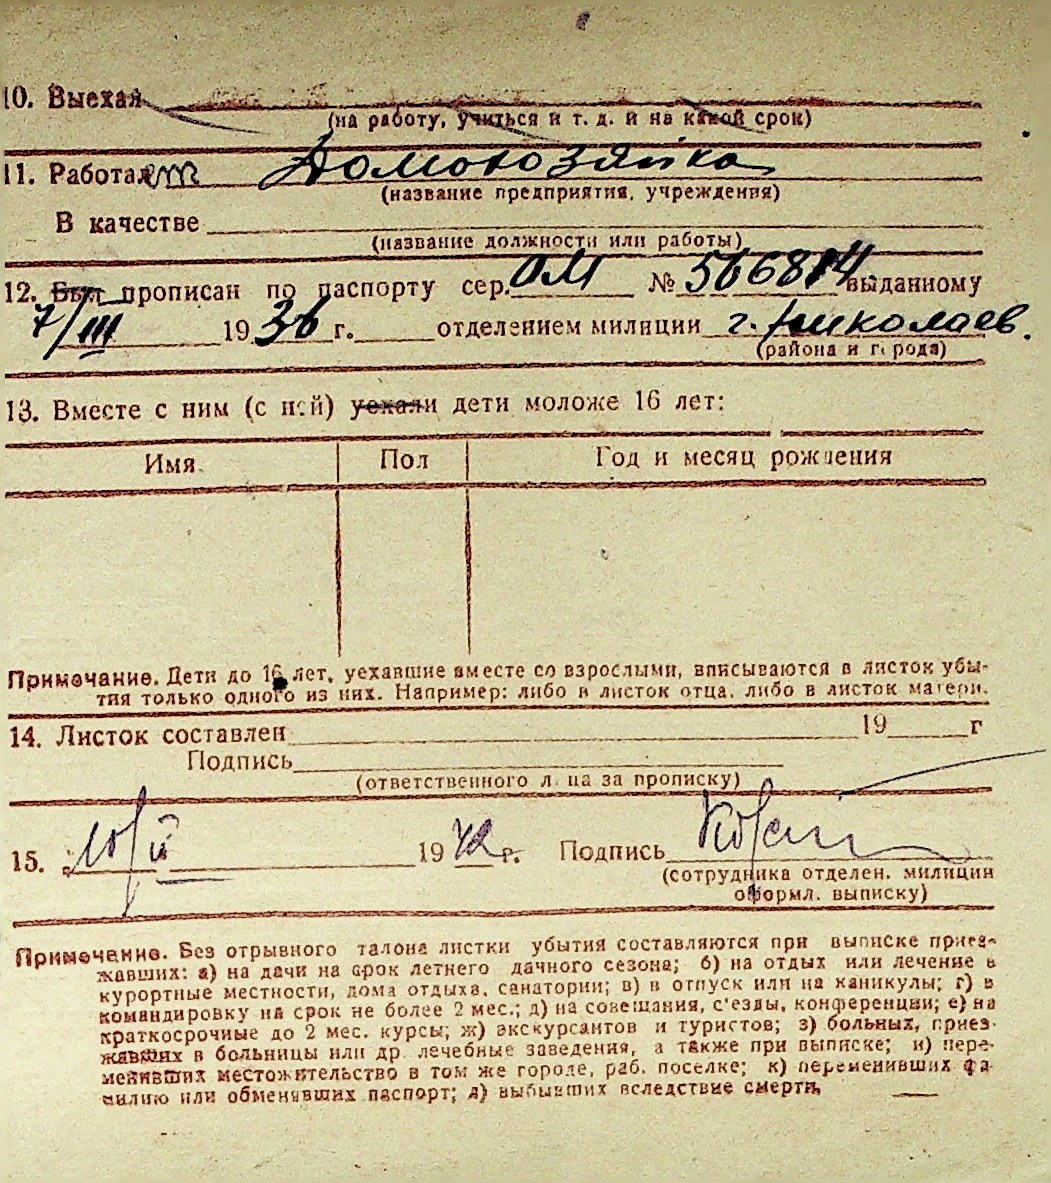 10. Выехал
(на работу, учиться и т. д. и на какой срок)
11. Работал Домохозяйка
(название предприятия, учреждения)
В качестве
(название должности или работы)
12. Был прописан по паспорту сер. ОМ № 566814 выданному
7/III 1936 г. отделением милиции г. Николаев.
(района и города)
13. Вместе с ним (с ней) уехали дети моложе 16 лет:
Имя. Пол Год и месяц рождения
Примечание. Дети до 16 лет, уехавшие вместе со взрослыми, вписываются в листок убы-
тия только одного из них. Например: либо в листок отца, либо в листок матери.
14. Листок составлен 19 г
Подпись
(ответственного лица за прописку)
15. 10/II 1942 г. Подпись
(сотрудника отделен. милиции
оформл. выписку)
Примечание. Без отрывного талона листки убытия составляются при выписке приез-
жавших: а) на дачи на срок летнего дачного сезона; б) на отдых или лечение в
курортные местности, дома отдыха, санатории; в) в отпуск или на каникулы; г) в
командировку на срок не более 2 мес.; д) на совещания, с'езды, конференции; е) на
краткосрочные до 2 мес. курсы; ж) экскурсантов и туристов; з) больных, приез-
жавших в больницы или др. лечебные заведения, а также при выписке; и) пере-
менивших местожительство в том же городе, раб. поселке; к) переменивших фа-
милию или обменявших паспорт; л) выбывших вследствие смерти.